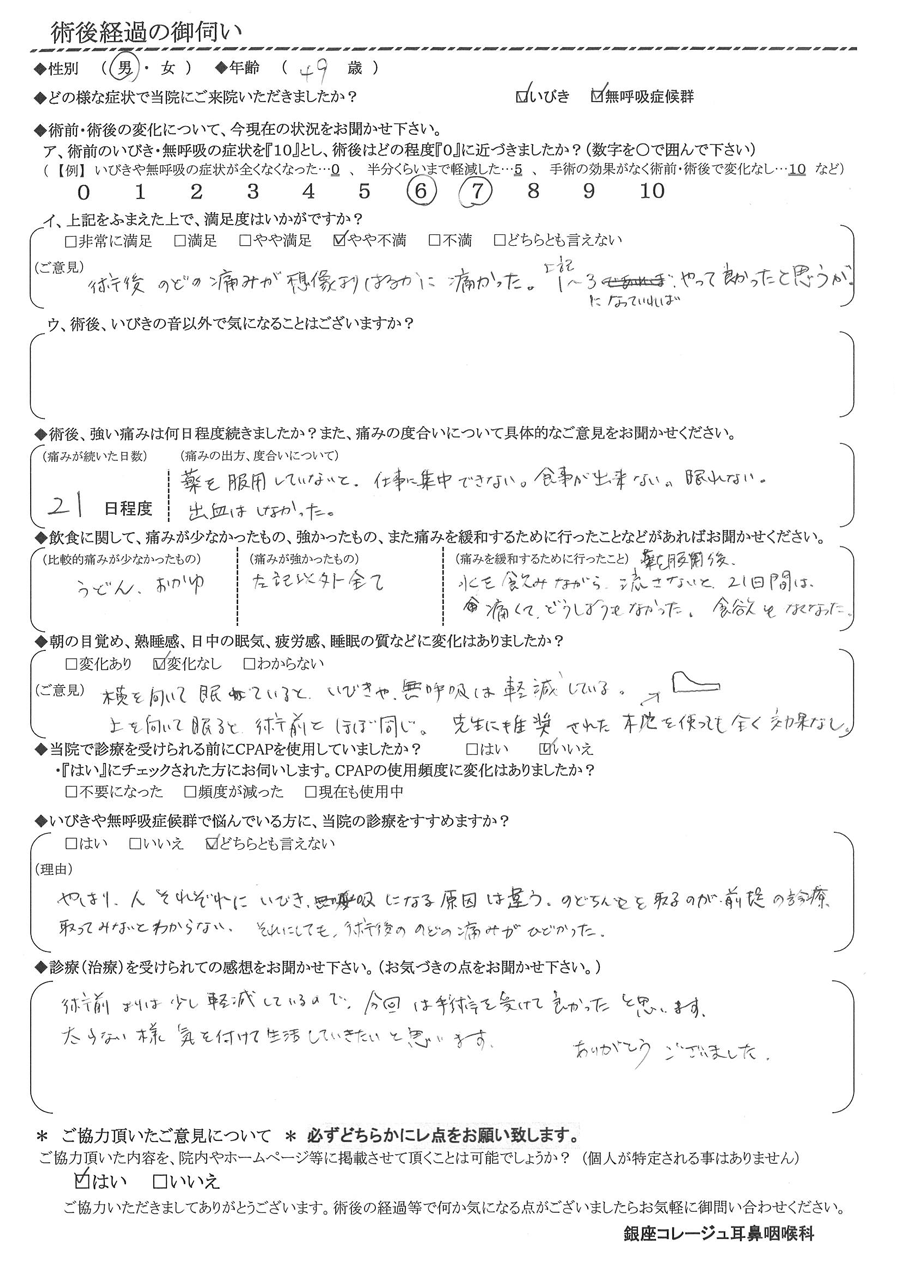 術後経過の御伺い
◆性別 （ 男 ・ 女 ） ◆年齢 （ 49 歳 ）
◆どの様な症状で当院にご来院いただきましたか？ ☑いびき ☑無呼吸症候群
◆術前・術後の変化について、今現在の状況をお聞かせ下さい。
ア、術前のいびき・無呼吸の症状を『10』とし、術後はどの程度『0』に近づきましたか？（数字を○で囲んで下さい）
（【例】 いびきや無呼吸の症状が全くなくなった…0 、 半分くらいまで軽減した…5 、 手術の効果がなく術前・術後で変化なし…10 など）
0 1 2 3 4 5 6 7 8 9 10
イ、上記をふまえた上で、満足度はいかがですか？
□非常に満足 □満足 □やや満足 ☑やや不満 □不満 □どちらとも言えない
（ご意見） 術後 のどの痛みが想像よりはるかに痛かった。上記1〜3 になっていれば やって良かったと思うが。
ウ、術後、いびきの音以外で気になることはございますか？
◆術後、強い痛みは何日程度続きましたか？また、痛みの度合いについて具体的なご意見をお聞かせください。
（痛みが続いた日数） （痛みの出方、度合いについて）
薬を服用していないと、仕事に集中できない。食事が出来ない。眠れない。
21 日程度 出血はしなかった。
◆飲食に関して、痛みが少なかったもの、強かったもの、また痛みを緩和するために行ったことなどがあればお聞かせください。
（比較的痛みが少なかったもの） （痛みが強かったもの） （痛みを緩和するために行ったこと） 薬を服用後、
うどん、おかゆ 左記以外全て 水を飲みながら、流さないと、21日間は、
痛くて、どうしようもなかった。食欲もなくなった。
◆朝の目覚め、熟睡感、日中の眠気、疲労感、睡眠の質などに変化はありましたか？
□変化あり ☑変化なし □わからない
（ご意見） 横を向いて眠っていると、いびきや、無呼吸は軽減している。
上を向いて眠ると、術前とほぼ同じ。先生に推奨された枕を使っても全く効果なし。
◆当院で診療を受けられる前にCPAPを使用していましたか？ □はい ☑いいえ
・『はい』にチェックされた方にお伺いします。CPAPの使用頻度に変化はありましたか？
□不要になった □頻度が減った □現在も使用中
◆いびきや無呼吸症候群で悩んでいる方に、当院の診療をすすめますか？
□はい □いいえ ☑どちらとも言えない
（理由）
やはり、人それぞれにいびき、無呼吸になる原因は違う、のどちんこを取るのが前提の診療、
取ってみないとわからない、それにしても、術後ののどの痛みがひどかった。
◆診療（治療）を受けられての感想をお聞かせ下さい。（お気づきの点をお聞かせ下さい。）
術前よりは少し軽減しているので、今回は手術を受けて良かったと思います。
太らない様気を付けて生活していきたいと思います。 ありがとうございました。
＊ ご協力頂いたご意見について ＊ 必ずどちらかにレ点をお願い致します。
ご協力頂いた内容を、院内やホームページ等に掲載させて頂くことは可能でしょうか？（個人が特定される事はありません）
☑はい □いいえ
ご協力いただきましてありがとうございます。術後の経過等で何か気になる点がございましたらお気軽に御問い合わせください。
銀座コレージュ耳鼻咽喉科